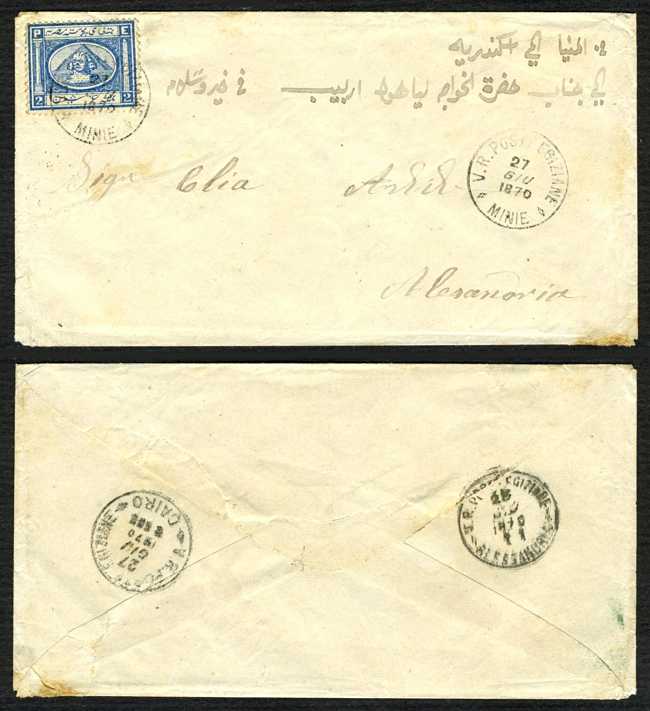 P E
2 2
27
1870
MINIE
من المنيا الى اسكندريه
الى جناب حضرة الخواجه اربيب في خير وسلام
V. R. POSTE EGIZIANE
27
GIU
1870
MINIE
Sigr Elia
Alexandria
V. R. POSTE EGIZIANE
27
GIU
1870
CAIRO
V. R. POSTE EGIZIANE
GIU
1870
ALESSANDRIA